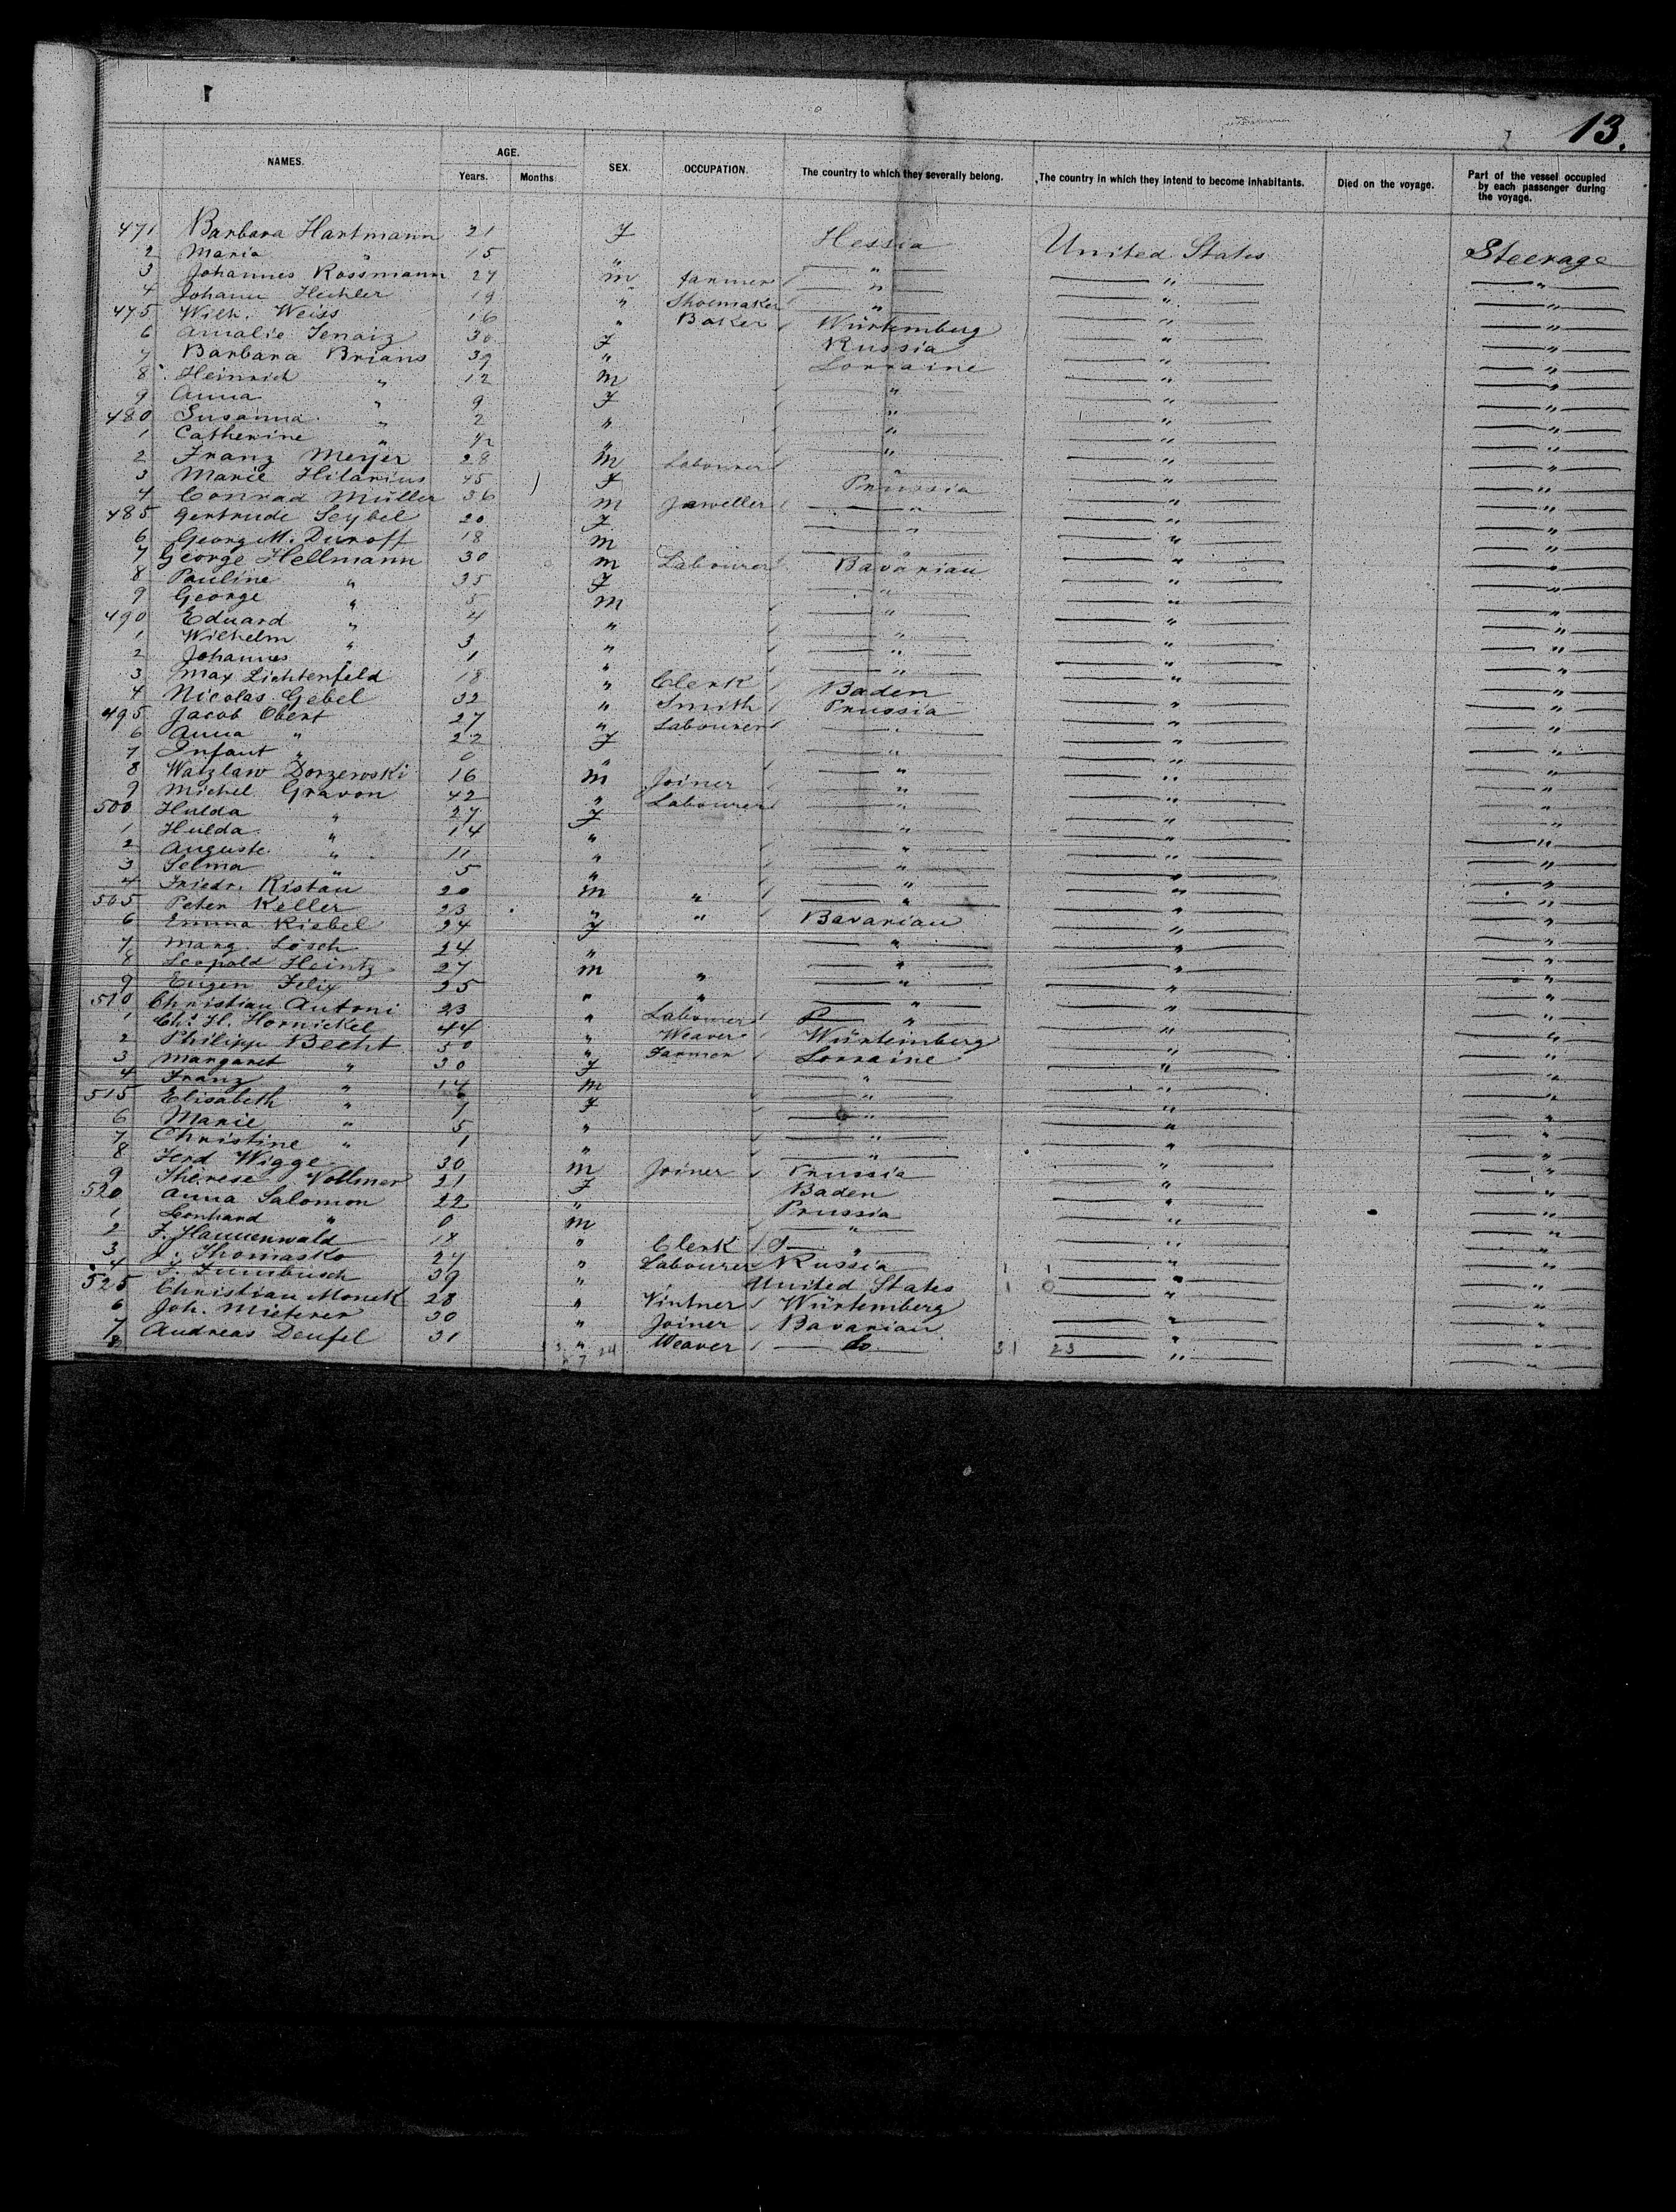 13.
NAMES. AGE. Years. Months SEX. OCCUPATION. The country to which they severally belong. The country in which they intend to become inhabitants. Died on the voyage. Part of the vessel occupied by each passenger during the voyage.
471 Barbara Hartmann 21 F Hessia United States Steerage
2 Maria " 15 " " " "
3 Johannes Rossmann 27 m farmer " " "
4 Johann Hechler 19 " Shoemaker " " "
475 Wilh. Weiss 16 " Baker Würtemberg " "
6 Amalie 30 F Russia " "
7 Barbara Brians 39 " Lorraine " "
8 Heinrich " 12 m " " "
9 Anna " 9 F " " "
480 Susanna " 2 " " " "
1 Catherine " ½ " " " "
2 Franz Meyer 28 m Labourer " " "
3 Marie Hilarius 45 F Prussia " "
4 Conrad Müller 36 m Jeweller " " "
485 Gertrude Seybel 20 F " " "
6 Georg M. Duroff 18 m " " "
7 George Hellmann 30 m Labourer Bavarian " "
8 Pauline " 35 F " " "
9 George " 5 m " " "
490 Eduard " 4 " " " "
1 Wilhelm " 3 " " " "
2 Johannes " 1 " " " "
3 Max Lichtenfeld 18 " Clerk Baden " "
4 Nicolas Gebel 32 " Smith Prussia " "
495 Jacob Obert 27 " Labourer " " "
6 Anna " 22 F " " "
7 Infant " 0 " " " "
8 Watzlaw Dorzewski 16 m Joiner " " "
9 Michel Gravon 42 " Labourer " " "
500 Hulda " 27 F " " "
1 Hulda " 14 " " " "
2 Auguste " 11 " " " "
3 Selma " 5 " " " "
4 Friedr. Ristau 20 m " " " "
505 Peter Keller 23 " " Bavarian " "
6 Emma Kiebel 24 F " " "
7 Marg. Lösch 24 " " " "
8 Leopold Heintz 27 m " " " "
9 Eugen Felix 25 " " " " "
510 Christian Antoni 23 " Labourer P " " "
1 Chs. H. Hornickel 44 " Weaver Würtemberg " "
2 Philipp Becht 50 " Farmer Lorraine " "
3 Margaret " 30 F " " "
4 Franz " 14 m " " "
515 Elisabeth " 7 F " " "
6 Marie " 5 " " " "
7 Christine " 1 " " " "
8 Ferd Wigge 30 m Joiner Prussia " "
9 Therese Vollmer 21 F Baden " "
520 Anna Salomon 22 " Prussia " "
1 Leonhard " 0 m " " "
2 F. Hannenwald 18 " Clerk " " "
3 J. Thomasko 27 " Labourer Russia " "
4 F. Zumbusch 39 " United States 1 0 " "
525 Christian Monek 28 " Vintner Würtemberg " "
6 Joh. Mieterer 30 " Joiner Bavarian " "
7 Andreas Deufel 31 " Weaver do " "
8 31 23